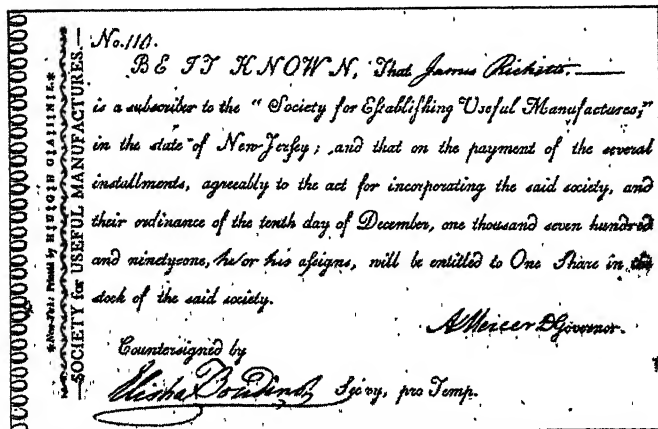 No. 110.
BE IT KNOWN, That James Ricketts.
is a subscriber to the “Society for Eſtabliſhing Uſeful Manufactures;”
in the state of New-Jerſey; and that on the payment of the several
installments, agreeably to the act for incorporating the said society, and
their ordinance of the tenth day of December, one thousand seven hundred
and ninety-one, he or his aſsigns, will be entitled to One Share in the
stock of the said society.
A Mercer D Governor.
Countersigned by
Elisha Boudinot Sec'ry, pro Temp.
SOCIETY for USEFUL MANUFACTURES.
New-York: Printed by